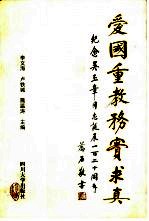 愛國重教務實求真
紀念吳玉章同志誕辰一百二十周年
敬書
李文海 卢铁城 隗瀛涛 主编
四川大学出版社